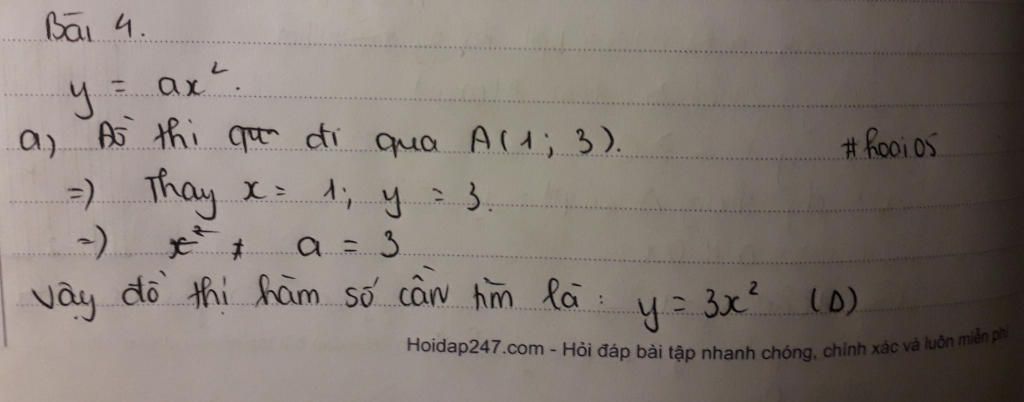 Bài 4.
y = ax².
a) Đồ thi đi qua A(1; 3). #hooi05
=> Thay x = 1; y = 3.
=> a = 3
Vậy đồ thị hàm số cần tìm là: y = 3x² (D)
Hoidap247.com - Hỏi đáp bài tập nhanh chóng, chính xác và luôn miễn phí